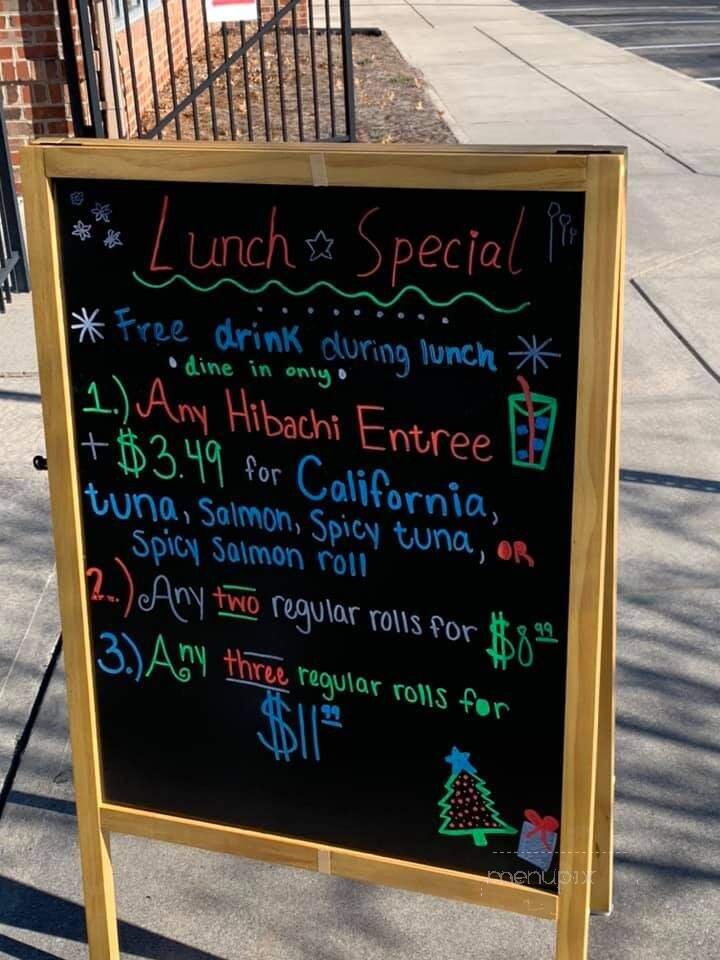 Lunch Special
Free drink during lunch
dine in only
1.) Any Hibachi Entree
+ $3.49 for California,
tuna, Salmon, Spicy tuna, OR
Spicy Salmon roll
2.) Any two regular rolls for $8.99
3.) Any three regular rolls for
$11.99
menupix